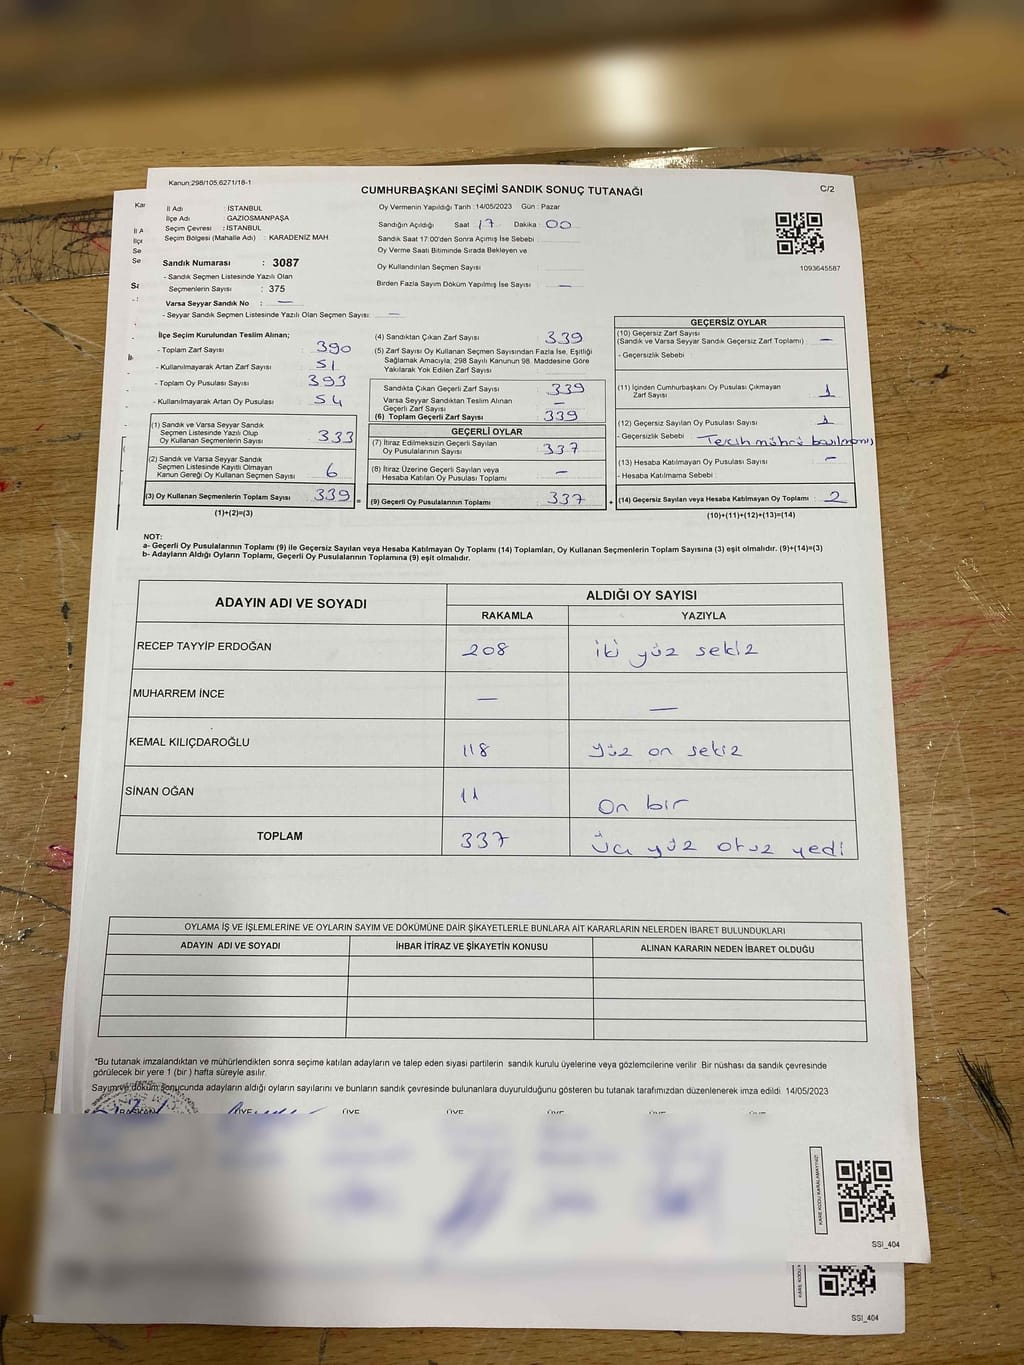 Kanun:298/105,6271/18-1
CUMHURBAŞKANI SEÇİMİ SANDIK SONUÇ TUTANAĞI
C/2
İl Adı : İSTANBUL
İlçe Adı : GAZİOSMANPAŞA
Seçim Çevresi : İSTANBUL
Seçim Bölgesi (Mahalle Adı) : KARADENİZ MAH.
Sandık Numarası : 3087
- Sandık Seçmen Listesinde Yazılı Olan
Seçmenlerin Sayısı : 375
Varsa Seyyar Sandık No : —
- Seyyar Sandık Seçmen Listesinde Yazılı Olan Seçmen Sayısı : —
Oy Vermenin Yapıldığı Tarih : 14/05/2023 Gün : Pazar
Sandığın Açıldığı Saat : 17 Dakika : 00
Sandık Saat 17:00'den Sonra Açımış İse Sebebi
Oy Verme Saati Bitiminde Sırada Bekleyen ve
Oy Kullandırılan Seçmen Sayısı :
Birden Fazla Sayım Döküm Yapılmış İse Sayısı : —
1093645587
İlçe Seçim Kurulundan Teslim Alınan;
- Toplam Zarf Sayısı : 390
- Kullanılmayarak Artan Zarf Sayısı : 51
- Toplam Oy Pusulası Sayısı : 393
- Kullanılmayarak Artan Oy Pusulası : 54
(1) Sandık ve Varsa Seyyar Sandık
Seçmen Listesinde Yazılı Olup
Oy Kullanan Seçmenlerin Sayısı : 333
(2) Sandık ve Varsa Seyyar Sandık
Seçmen Listesinde Kayıtlı Olmayan
Kanun Gereği Oy Kullanan Seçmen Sayısı : 6
(3) Oy Kullanan Seçmenlerin Toplam Sayısı : 339 =
(1)+(2)=(3)
(4) Sandıktan Çıkan Zarf Sayısı : 339
(5) Zarf Sayısı Oy Kullanan Seçmen Sayısından Fazla İse, Eşitliği
Sağlamak Amacıyla; 298 Sayılı Kanunun 98. Maddesine Göre
Yakılarak Yok Edilen Zarf Sayısı :
Sandıkta Çıkan Geçerli Zarf Sayısı : 339
Varsa Seyyar Sandıktan Teslim Alınan
Geçerli Zarf Sayısı : —
(6) Toplam Geçerli Zarf Sayısı : 339
GEÇERLİ OYLAR
(7) İtiraz Edilmeksizin Geçerli Sayılan
Oy Pusulalarının Sayısı : 337
(8) İtiraz Üzerine Geçerli Sayılan veya
Hesaba Katılan Oy Pusulası Toplamı : —
(9) Geçerli Oy Pusulalarının Toplamı : 337 +
GEÇERSİZ OYLAR
(10) Geçersiz Zarf Sayısı
(Sandık ve Varsa Seyyar Sandık Geçersiz Zarf Toplamı) : —
- Geçersizlik Sebebi :
(11) İçinden Cumhurbaşkanı Oy Pusulası Çıkmayan
Zarf Sayısı : 1
(12) Geçersiz Sayılan Oy Pusulası Sayısı : 1
- Geçersizlik Sebebi : Tercih mührü basılmamış
(13) Hesaba Katılmayan Oy Pusulası Sayısı : —
- Hesaba Katılmama Sebebi :
(14) Geçersiz Sayılan veya Hesaba Katılmayan Oy Toplamı : 2
(10)+(11)+(12)+(13)=(14)
NOT:
a- Geçerli Oy Pusulalarının Toplamı (9) ile Geçersiz Sayılan veya Hesaba Katılmayan Oy Toplamı (14) Toplamları, Oy Kullanan Seçmenlerin Toplam Sayısına (3) eşit olmalıdır. (9)+(14)=(3)
b- Adayların Aldığı Oyların Toplamı, Geçerli Oy Pusulalarının Toplamına (9) eşit olmalıdır.
ADAYIN ADI VE SOYADI
ALDIĞI OY SAYISI
RAKAMLA YAZIYLA
RECEP TAYYİP ERDOĞAN 208 iki yüz sekiz
MUHARREM İNCE — —
KEMAL KILIÇDAROĞLU 118 yüz on sekiz
SİNAN OĞAN 11 on bir
TOPLAM 337 üç yüz otuz yedi
OYLAMA İŞ VE İŞLEMLERİNE VE OYLARIN SAYIM VE DÖKÜMÜNE DAİR ŞİKAYETLERLE BUNLARA AİT KARARLARIN NELERDEN İBARET BULUNDUKLARI
ADAYIN ADI VE SOYADI İHBAR İTİRAZ VE ŞİKAYETİN KONUSU ALINAN KARARIN NEDEN İBARET OLDUĞU
*Bu tutanak imzalandıktan ve mühürlendikten sonra seçime katılan adayların ve talep eden siyasi partilerin sandık kurulu üyelerine veya gözlemcilerine verilir. Bir nüshası da sandık çevresinde
görülecek bir yere 1 (bir ) hafta süreyle asılır.
Sayım ve döküm sonucunda adayların aldığı oyların sayılarını ve bunların sandık çevresinde bulunanlara duyurulduğunu gösteren bu tutanak tarafımızdan düzenlenerek imza edildi. 14/05/2023
BAŞKAN ÜYE ÜYE ÜYE ÜYE ÜYE ÜYE
KARE KODU KARALAMAYINIZ!
SSİ_404
KARE KODU
SSİ_404